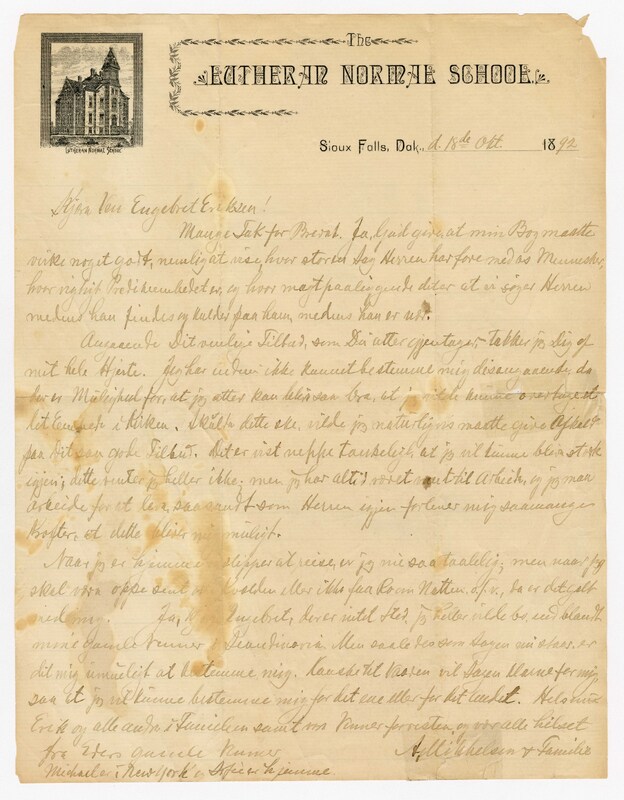 The
LUTHERAN NORMAL SCHOOL.
LUTHERAN NORMAL SCHOOL
Sioux Falls, Dak., d. 18de Okt. 1892
Kjære Ven Engebret Eriksen!
Mange Tak for Brevet. Ja, Gud give, at min Bog maatte
virke noget godt, nemlig at vise, hvor stor en Sag Herren har fore med os Mennesker,
hvor vigtigt Prædikeembedet er, og hvor magtpaaliggende det er at vi søger Herren
medens han findes og kalder paa ham, medens han er nær.
Angaaende Dit venlige Tilbud, som Du atter gjentager, takker jeg Dig af
mit hele Hjerte. Jeg har endnu ikke kunnet bestemme mig desangaaende, da
der er Mulighed for, at jeg atter kan blive saa bra, at jeg vilde kunne overtage et
let Embede i Kirken. Skulde dette ske, vilde jeg naturligvis maatte give Afkald
paa Dit saa gode Tilbud. Det er vist neppe tænkeligt, at jeg vil kunne blive stærk
igjen; dette venter jeg heller ikke; men jeg har altid været vant til Arbeide, og jeg maa
arbeide for at leve, saa sandt som Herren igjen forlener mig saa mange
Kræfter, at dette bliver mig muligt.
Naar jeg er hjemme og slipper at reise, er jeg nu saa taalelig; men naar jeg
skal være oppe sent om Kvelden eller ikke faa Ro om Natten o.s.v., da er det galt
med mig. Ja, Engebret, der er intet Sted, jeg heller vilde bo, end blandt
mine gamle Venner i Scandinavia. Men saaledes som Sagen nu staar, er
det mig umuligt at bestemme mig. Kanske til Vaaren vil Sagen klarne for mig,
saa at jeg vil kunne bestemme mig for det ene eller for det andet. Hels nu
Erik og alle andre i Familien samt vore Venner forresten, og vær alle hilset
fra Eders gamle Venner A. Mikkelsen & Familie
Michael er i New York. Sofie er hjemme.